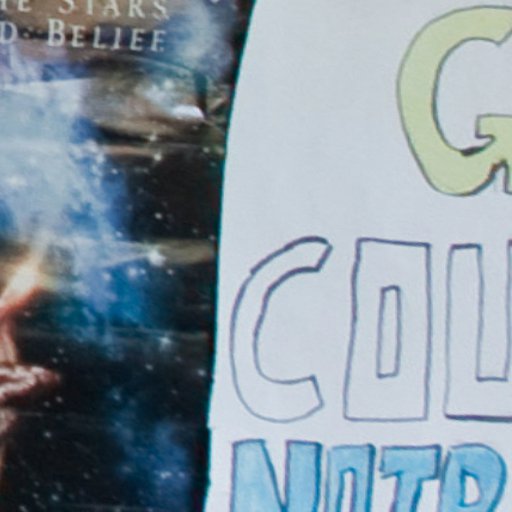 STARS
BELIEF
G
COU
NOTR